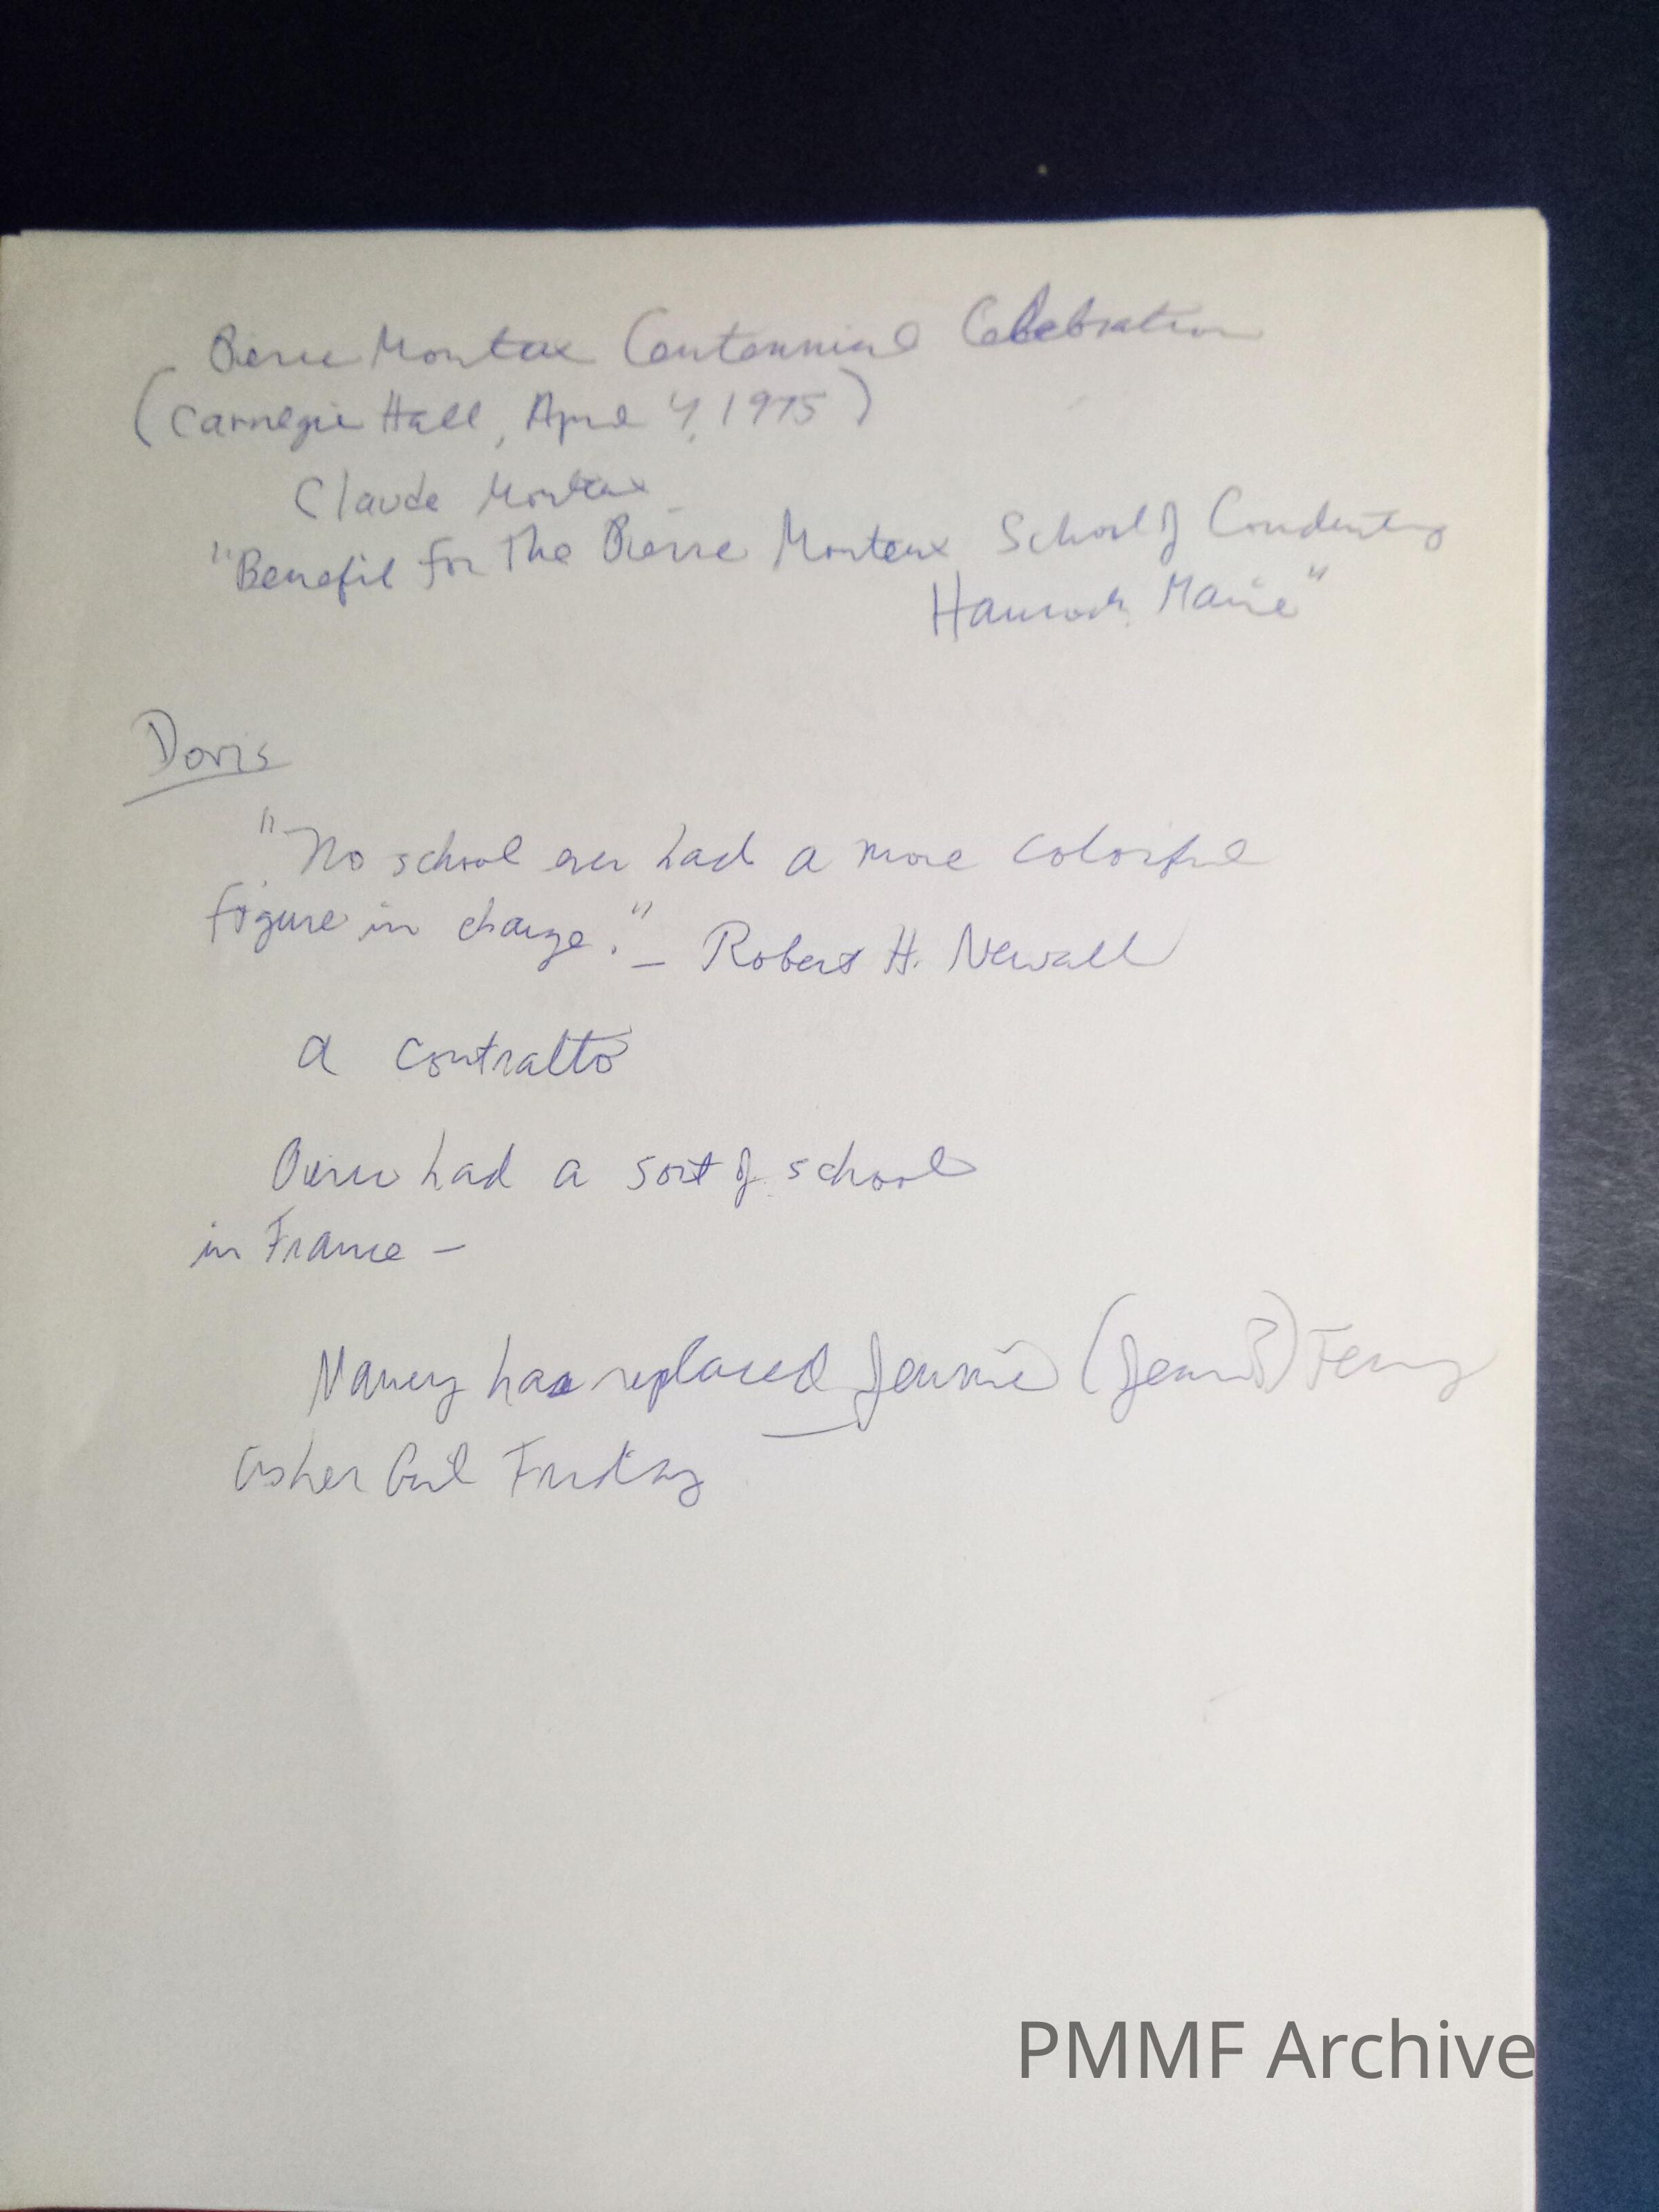 Pierre Monteux Centennial Celebration
(Carnegie Hall, April 4, 1975)
Claude Monteux
"Benefit for The Pierre Monteux School of Conducting
Hancock, Maine"
Doris
"No school ever had a more colorful
figure in charge." — Robert H. Newall
a contralto
Pierre had a sort of school
in France —
Nancy has replaced Jennie ( ) Ferry
as her Girl Friday
PMMF Archive